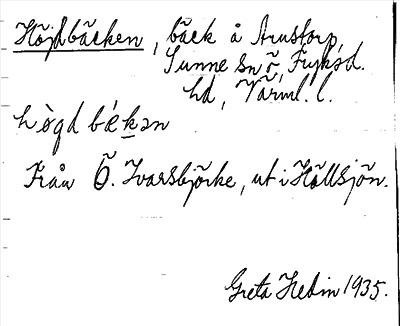 Höjdbäcken, bäck å Arnstorp,
Sunne sn ö, Fryksd.
hd, Värml. l.
hὸgd bέkən
Från Ö. Ivarsbjörke, ut i Hållsjön.
Greta Hedin 1935.